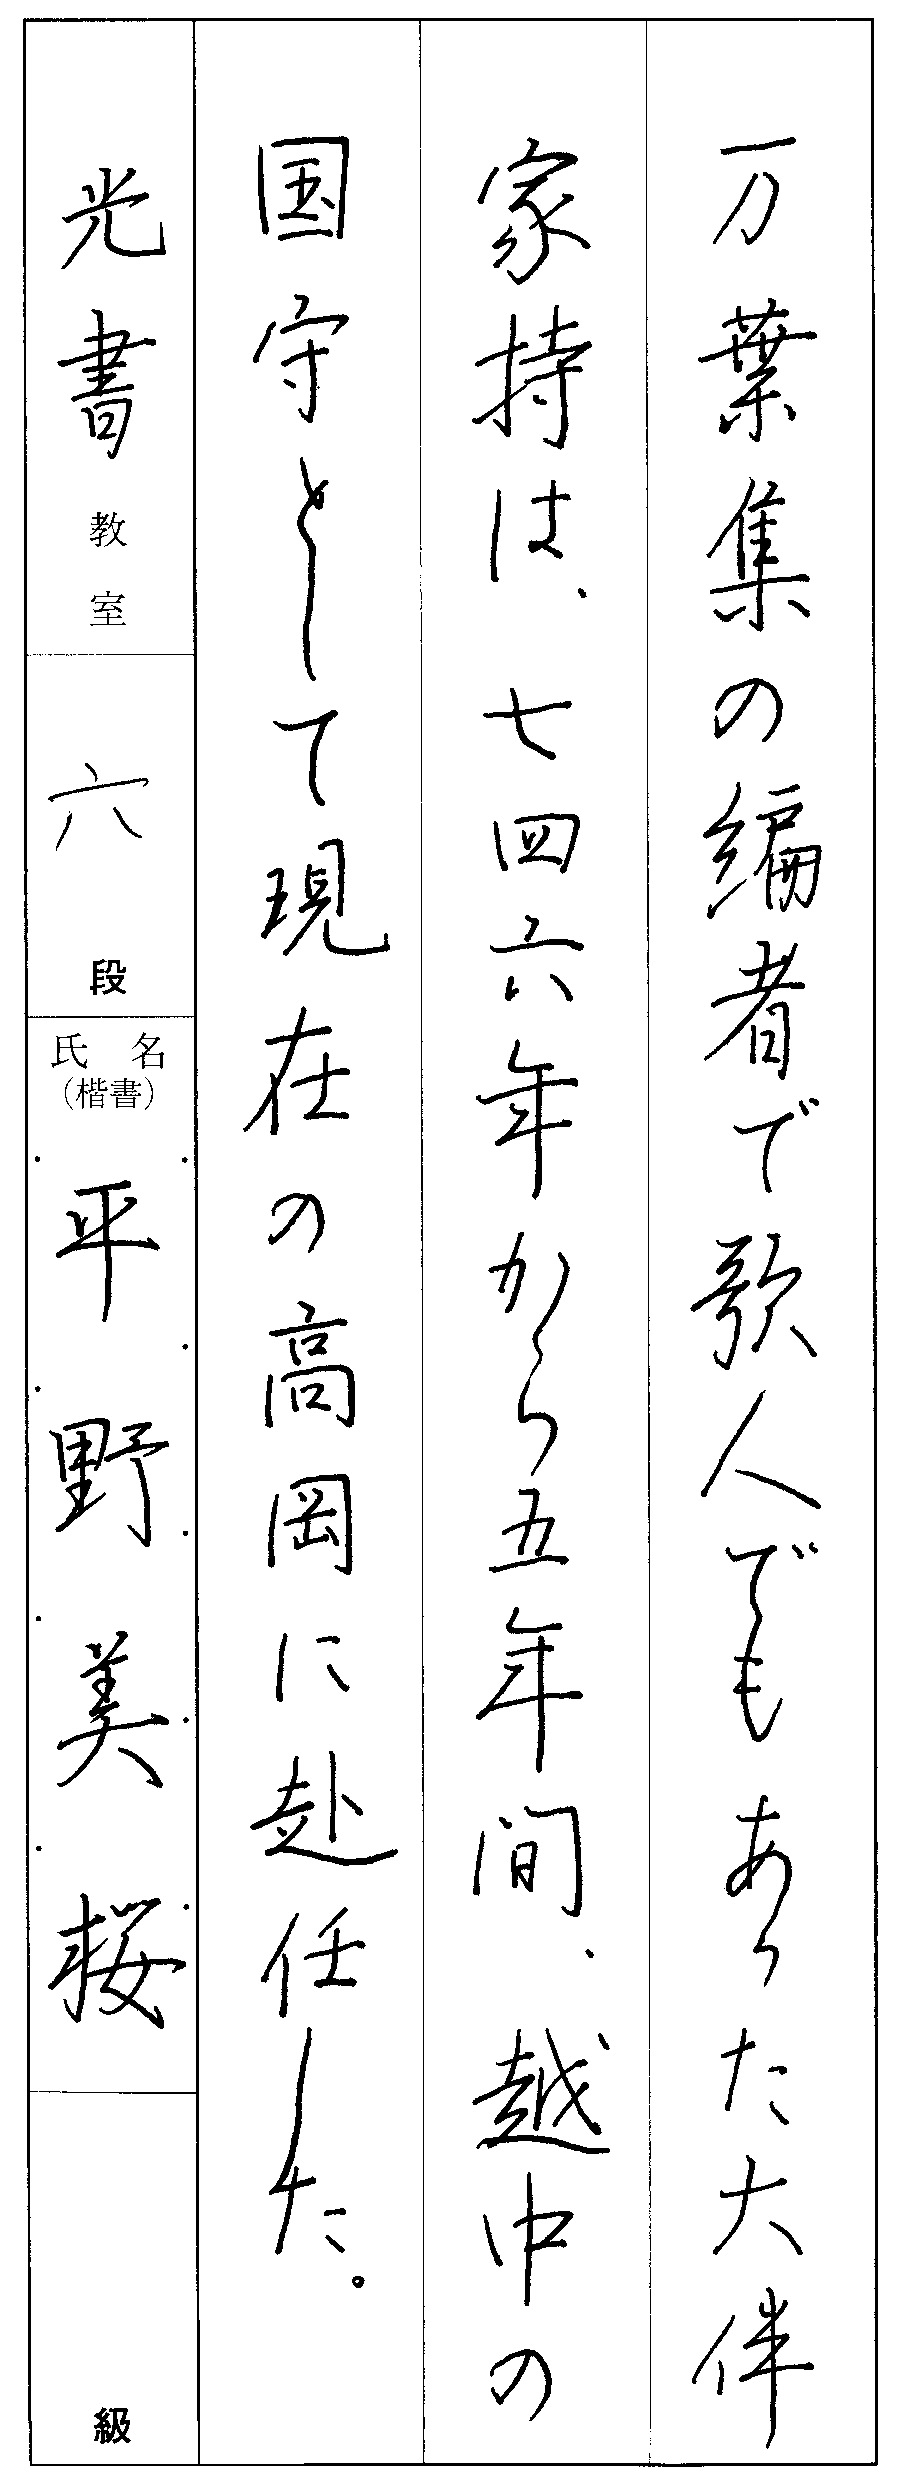 万葉集の編者で歌人でもあった大伴
家持は、七四六年から五年間、越中の
国守として現在の高岡に赴任した。
光書教室
六段
氏名
(楷書)
平野美桜
級